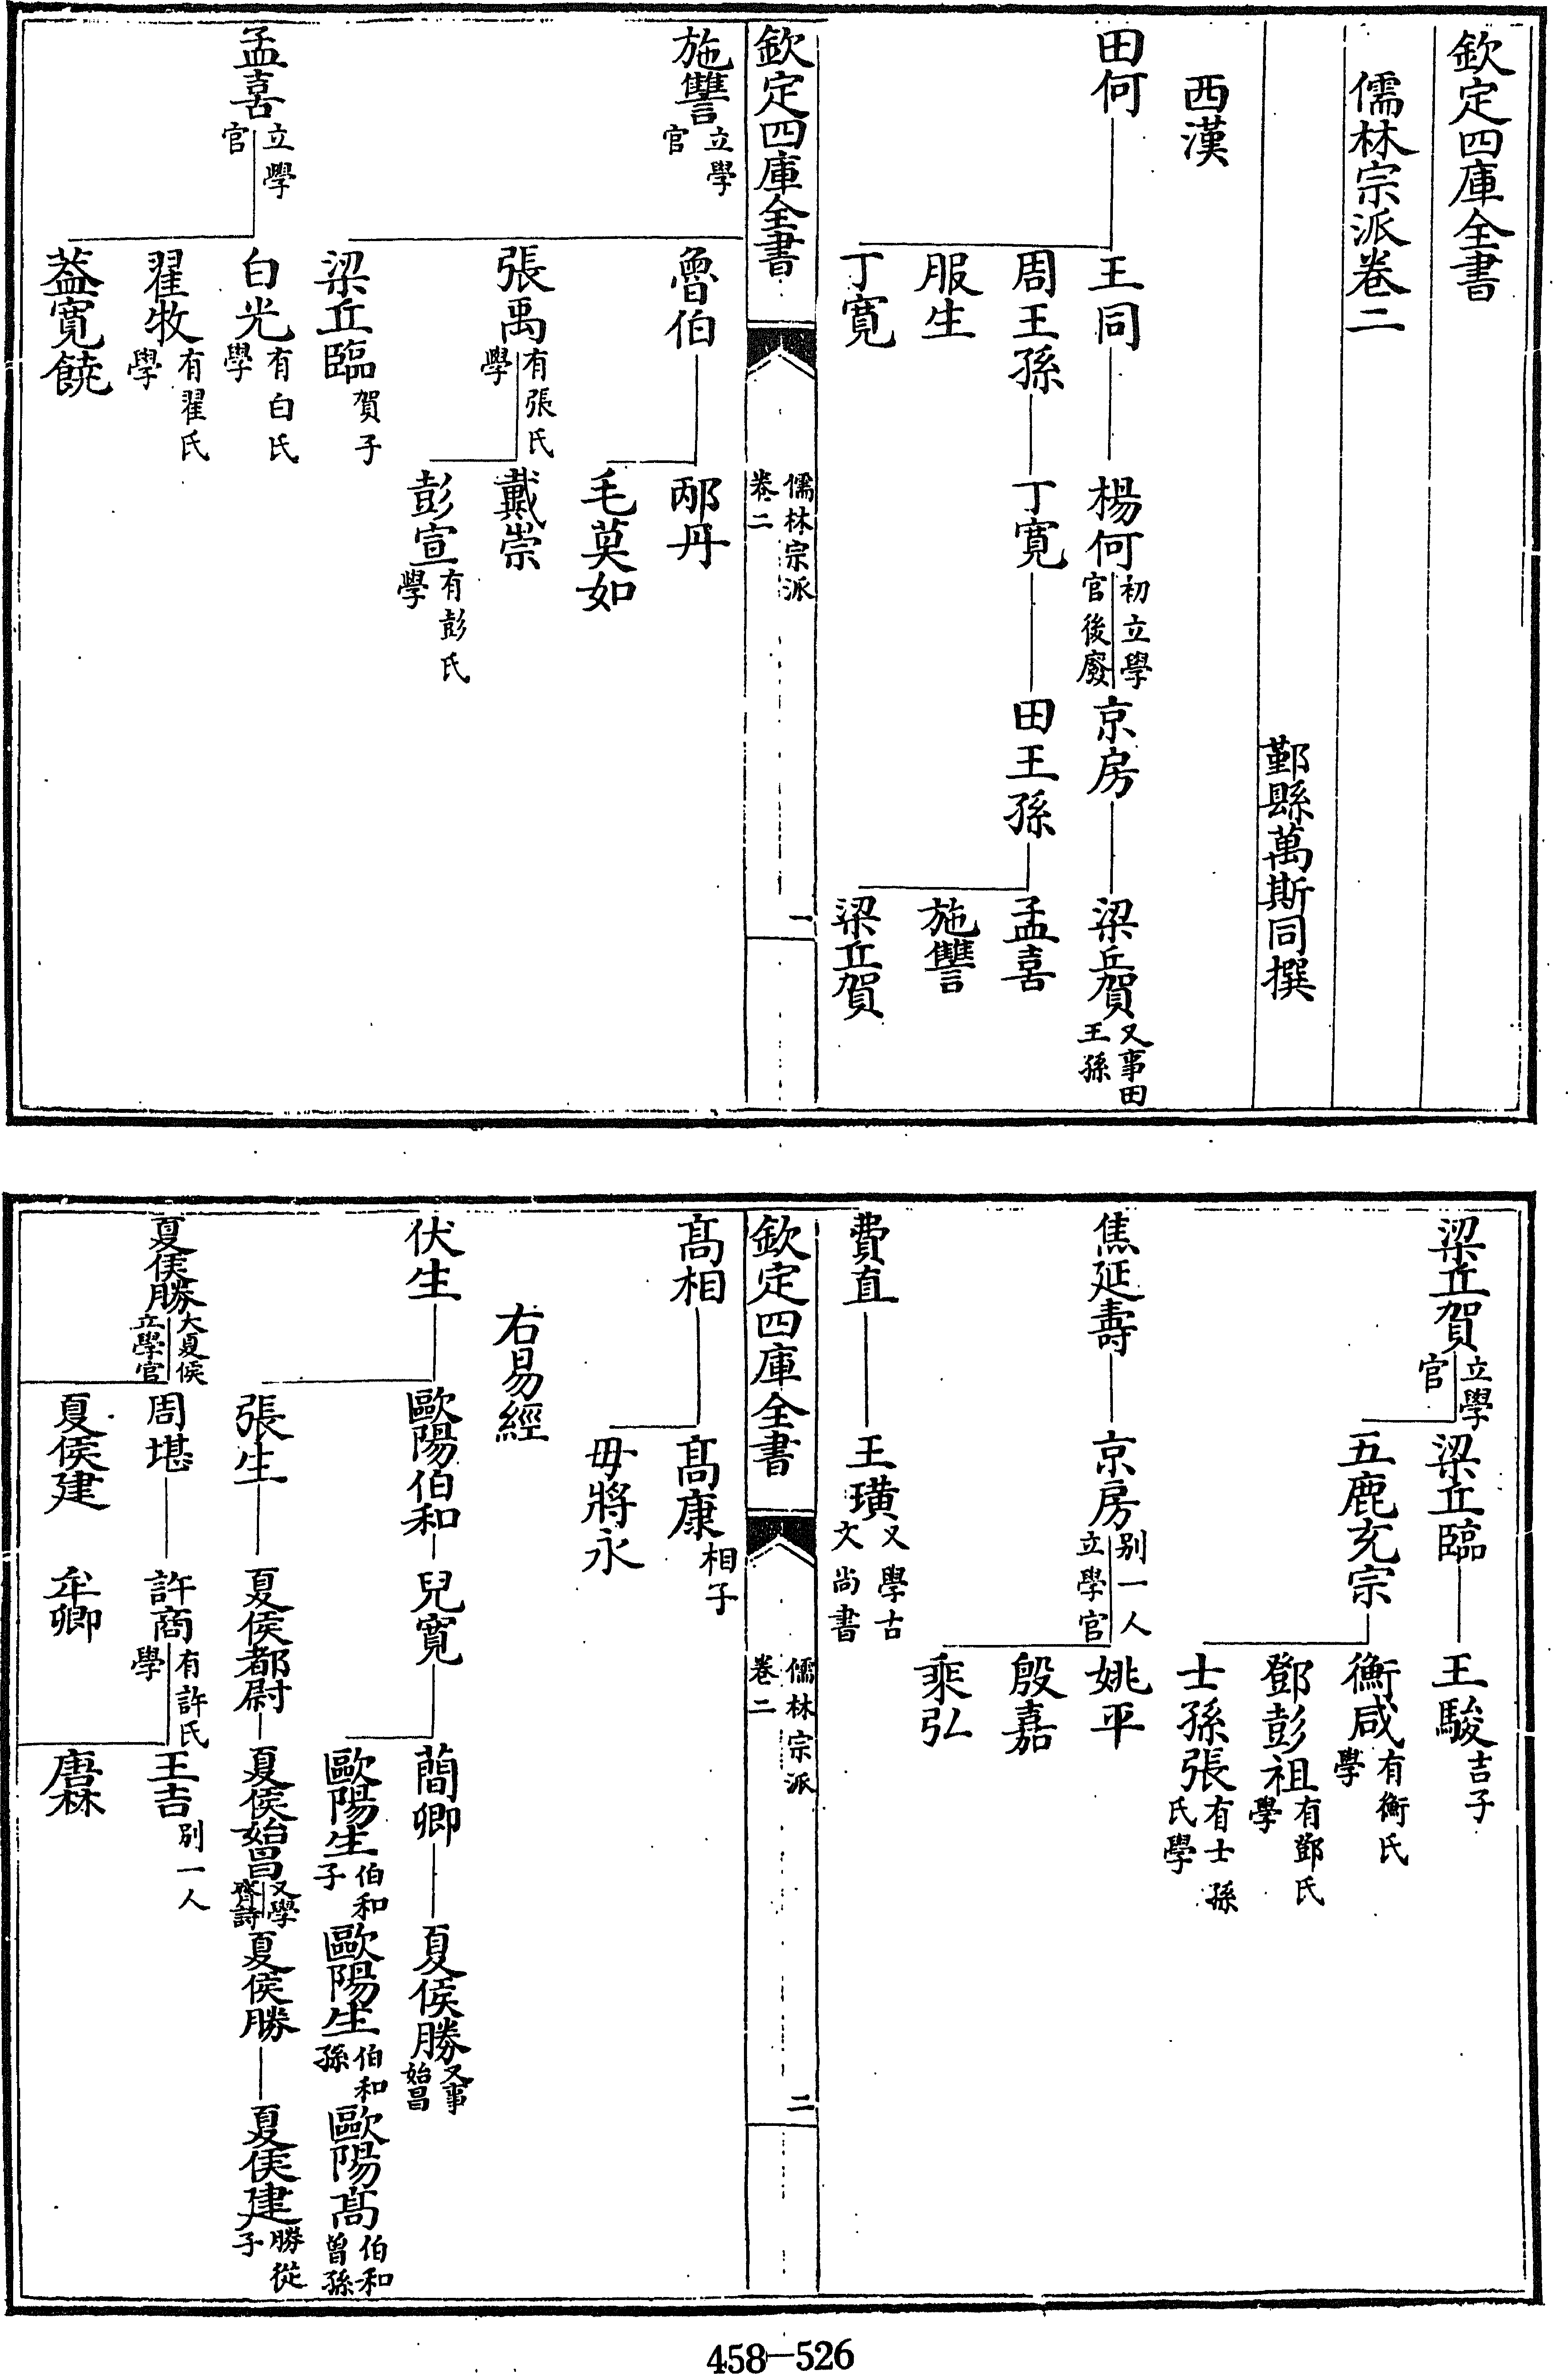 欽定四庫全書
儒林宗派卷二
鄞縣萬斯同撰
西漢
田何
王同
楊何初立學官後廢
京房
梁丘賀又事田王孫
周王孫
丁寬
田王孫
孟喜
服生
施讐
丁寬
梁丘賀
欽定四庫全書
儒林宗派
卷二
一
施讐立學官
魯伯
邴丹
毛莫如
張禹有張氏學
戴崇
彭宣有彭氏學
梁丘臨賀子
孟喜立學官
白光有白氏學
翟牧有翟氏學
葢寛饒
梁丘賀立學官
梁丘臨
王駿吉子
五鹿充宗
衡咸有衡氏學
鄧彭祖有鄧氏學
士孫張有士孫氏學
焦延壽
京房别一人立學官
姚平
殷嘉
乘弘
費直
王璜又學古文尚書
欽定四庫全書
儒林宗派
卷二
二
髙相
髙康相子
毋將永
右易經
伏生
歐陽伯和
兒寛
蕑卿
夏侯勝又事始昌
歐陽生伯和子
歐陽生伯和孫
歐陽髙伯和曾孫
張生
夏侯都尉
夏侯始昌又學齊詩
夏侯勝
夏侯建勝從子
夏侯勝大夏侯立學官
周堪
許商有許氏學
王吉别一人
夏侯建
牟卿
唐林
458—526